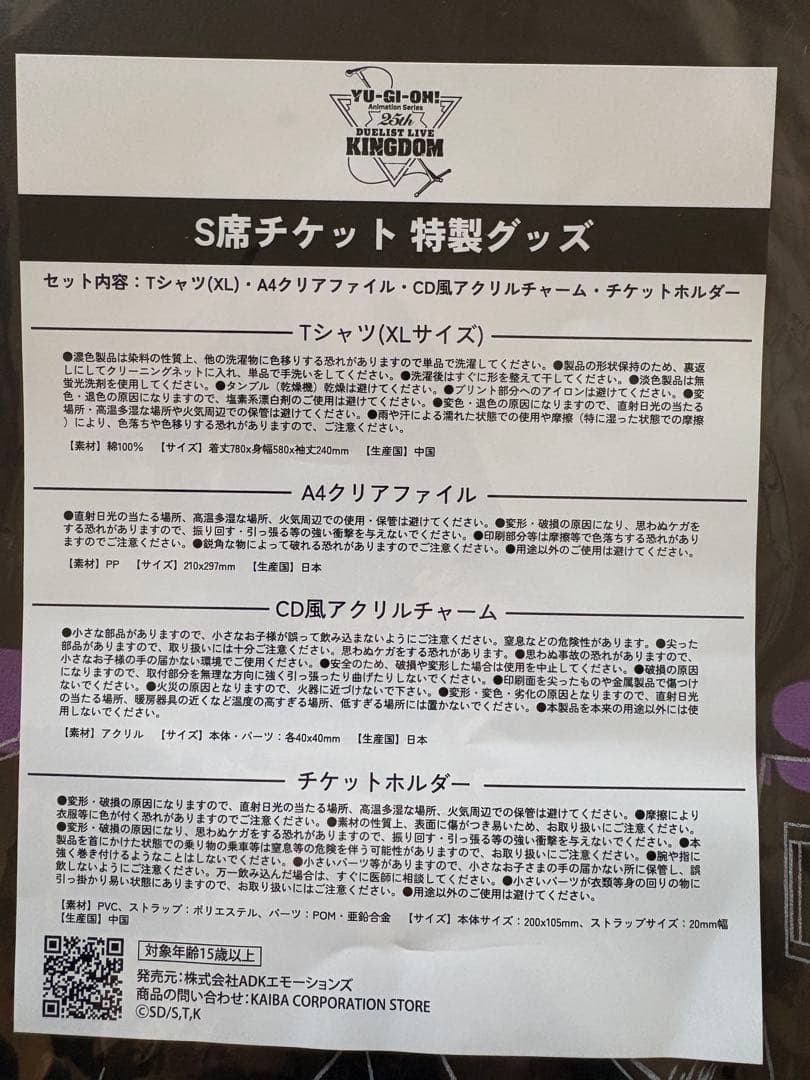 YU-GI-OH!
Animation Series
25th
DUELIST LIVE
KINGDOM
S席チケット 特製グッズ
セット内容：Tシャツ(XL)・A4クリアファイル・CD風アクリルチャーム・チケットホルダー
Tシャツ(XLサイズ)
●濃色製品は染料の性質上、他の洗濯物に色移りする恐れがありますので単品で洗濯してください。●製品の形状保持のため、裏返
しにしてクリーニングネットに入れ、単品で手洗いをしてください。●洗濯後はすぐに形を整えて干してください。●淡色製品は無
蛍光洗剤を使用してください。●タンブル（乾燥機）乾燥は避けてください。●プリント部分へのアイロンは避けてください。●変
色・退色の原因になりますので、塩素系漂白剤のご使用は避けてください。●変色・退色の原因になりますので、直射日光の当たる
場所・高温多湿な場所や火気周辺での保管は避けてください。●雨や汗による濡れた状態での使用や摩擦（特に湿った状態での摩擦
）により、色落ちや色移りする恐れがありますので、ご注意ください。
【素材】綿100% 【サイズ】着丈780x身幅580x袖丈240mm 【生産国】中国
A4クリアファイル
●直射日光の当たる場所、高温多湿な場所、火気周辺での使用・保管は避けてください。●変形・破損の原因になり、思わぬケガを
する恐れがありますので、振り回す・引っ張る等の強い衝撃を与えないでください。●印刷部分等は摩擦等で色落ちする恐れがあり
ますのでご注意ください。●鋭角な物によって破れる恐れがありますのでご注意ください。●用途以外のご使用は避けてください。
【素材】PP 【サイズ】210x297mm 【生産国】日本
CD風アクリルチャーム
●小さな部品がありますので、小さなお子様が誤って飲み込まないようにご注意ください。窒息などの危険性があります。●尖った
部品がありますので、取り扱いには十分ご注意ください。思わぬケガをする恐れがあります。●思わぬ事故の恐れがありますので、
小さなお子様の手の届かない環境でご使用ください。●安全のため、破損や変形した場合は使用を中止してください。●破損の原因
になりますので、取付部分を無理な方向に強く引っ張ったり曲げたりしないでください。●印刷面を尖ったものや金属製品で傷つけ
ないでください。●火災の原因となりますので、火器に近づけないで下さい。●変形・変色・劣化の原因となりますので、直射日光
の当たる場所、暖房器具の近くなど温度の高すぎる場所、低すぎる場所には置かないでください。●本製品を本来の用途以外には使
用しないでください。
【素材】アクリル 【サイズ】本体・パーツ：各40x40mm 【生産国】日本
チケットホルダー
●変形・破損の原因になりますので、直射日光の当たる場所、高温多湿な場所、火気周辺での保管は避けてください。●摩擦により
衣服等に色が付く恐れがありますのでご注意ください。●素材の性質上、表面に傷がつき易いため、お取り扱いにご注意ください。
●変形・破損の原因になり、思わぬケガをする恐れがありますので、振り回す・引っ張る等の強い衝撃を与えないでください。●本
製品を首にかけた状態での乗り物の乗車等は窒息等の危険を伴う可能性がありますので、お取り扱いにご注意ください。●腕や指に
強く巻き付けるようなことはしないでください。●小さいパーツ等がありますので、小さなお子さまの手の届かない所に保管し、誤
飲しないようにご注意ください。万一飲み込んだ場合は、すぐに医師に相談してください。●小さいパーツが衣類等身の回りの物に
引っ掛かり易い状態にありますので、お取り扱いにはご注意ください。●用途以外のご使用は避けてください。
【素材】PVC、ストラップ：ポリエステル、パーツ：POM・亜鉛合金 【サイズ】本体サイズ：200x105mm、ストラップサイズ：20mm幅
【生産国】中国
対象年齢15歳以上
発売元：株式会社ADKエモーションズ
商品の問い合わせ：KAIBA CORPORATION STORE
©SD/S,T,K